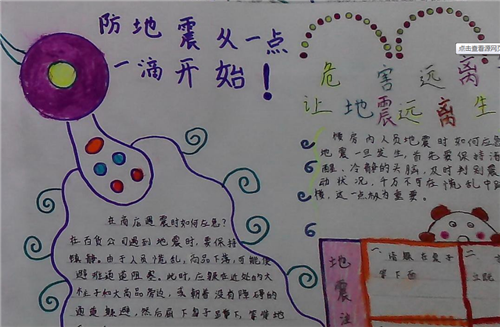 防地震从一点
一滴开始！
点击查看源网页
危害远离
让地震远离生
楼房内人员地震时如何应急?
地震一旦发生,首先要保持清
醒、冷静的头脑,及时判别震
动状况,千万不可在慌乱中跳
楼,这一点极为重要。
在商店遇震时如何应急?
在百货公司遇到地震时,要保持
镇静。由于人员慌乱,商品下落,可能使
避难通道阻塞。此时,应躲在近处的大
柱子和大商品旁边,或朝着没有障碍的
通道躲避,然后屈下身子蹲下,等待地
地震注
一、
桌子
下面
二、